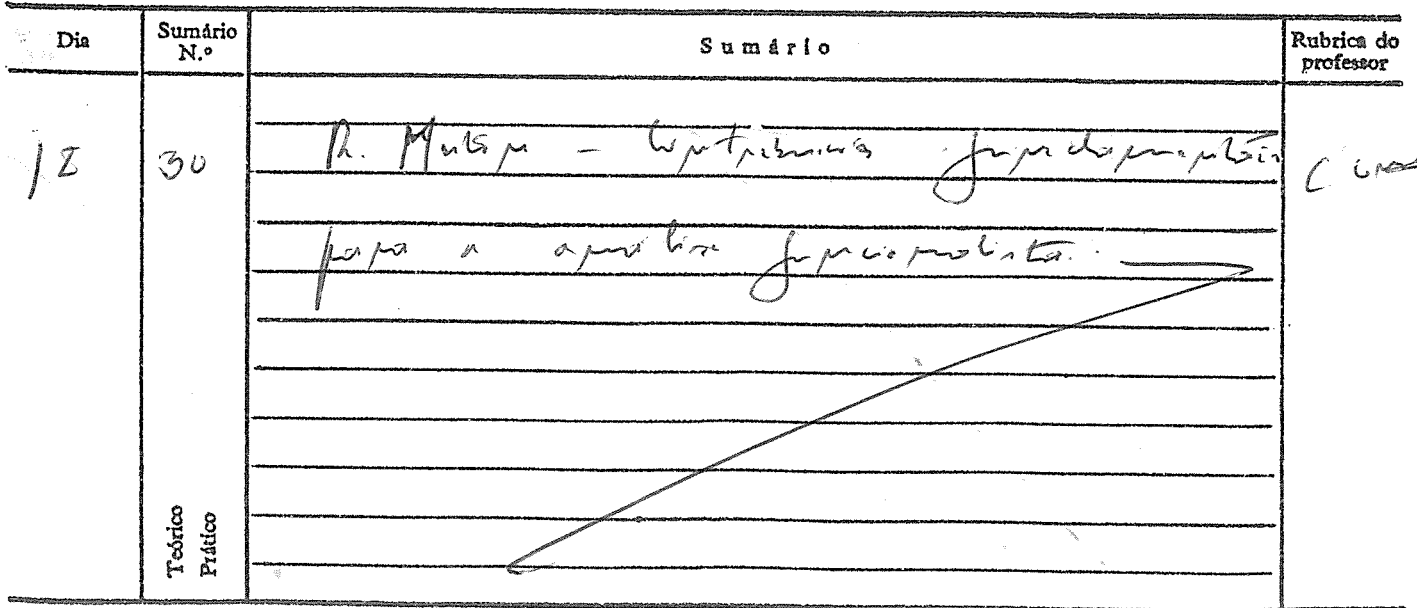 Dia
Sumário N.º
Sumário
Rubrica do professor
18
30
R. Merton - Contribuições fundamentais
para a análise funcionalista.
Teórico
Prático